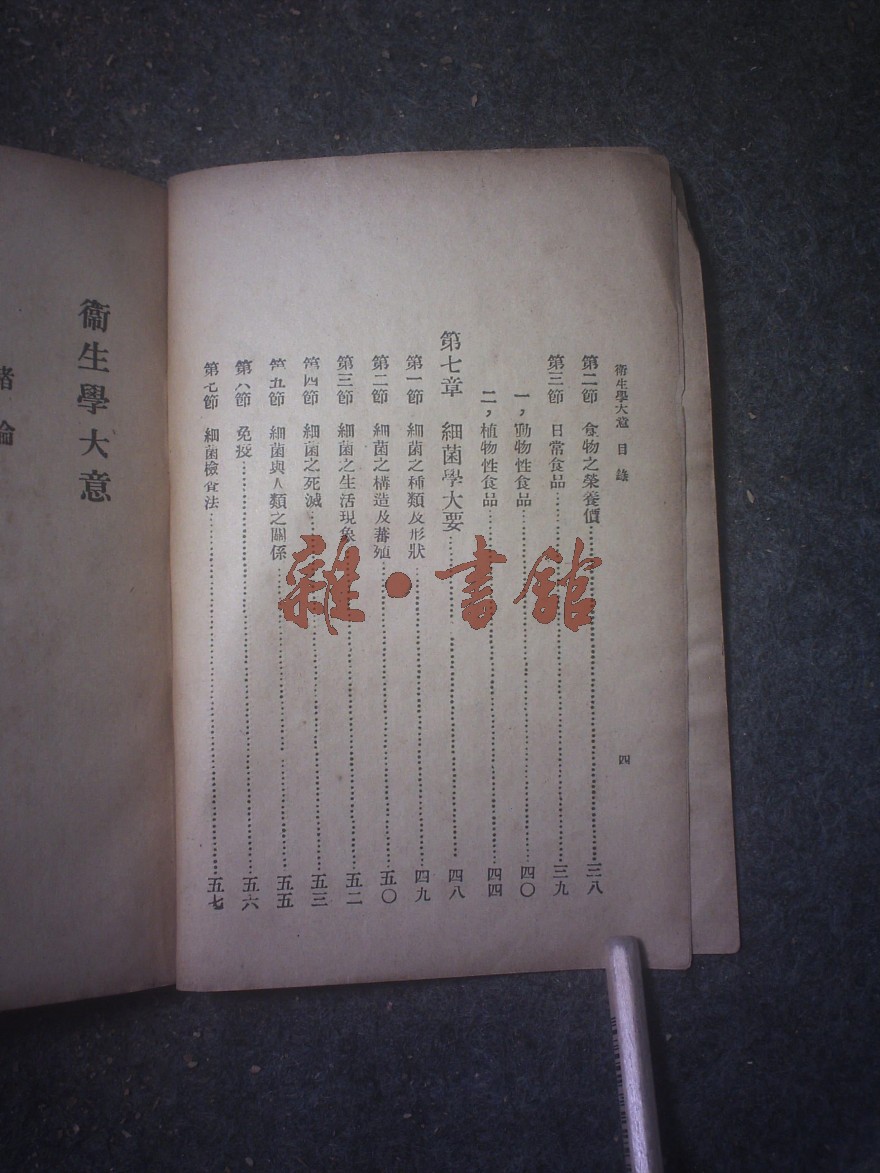 衞生學大意 目錄
四
第二節 食物之榮養價……三八
第三節 日常食品……三九
一，動物性食品……四〇
二，植物性食品……四四
第七章 細菌學大要……四八
第一節 細菌之種類及形狀……四九
第二節 細菌之構造及蕃殖……五〇
第三節 細菌之生活現象……五二
第四節 細菌之死滅……五三
第五節 細菌與人類之關係……五五
第六節 免疫……五六
第七節 細菌檢查法……五七
衞生學大意
緒論
雜·書館